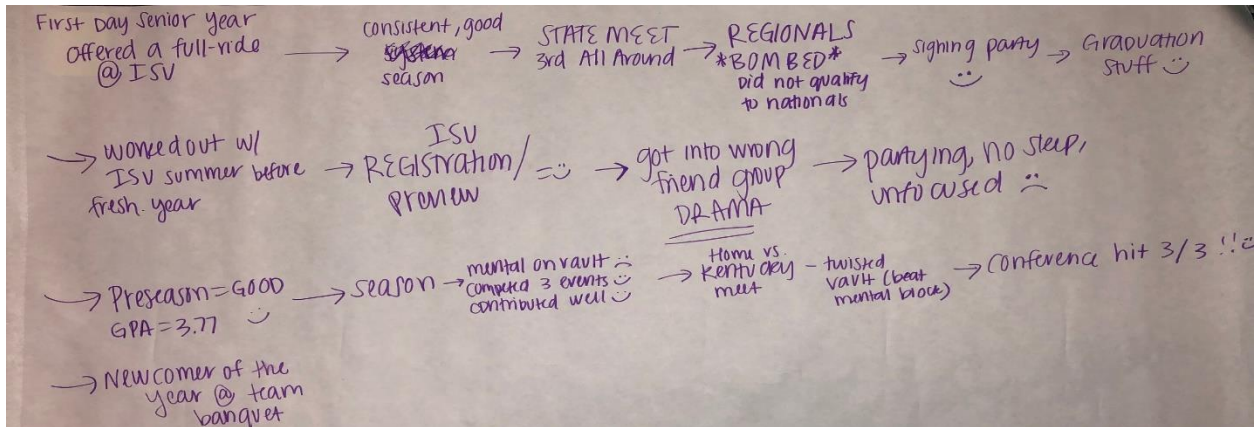 First Day Senior Year
offered a full-ride
@ ISU
→ consistent, good
season
→ STATE MEET
3rd All Around
→ REGIONALS
*BOMBED*
Did not qualify
to nationals
→ signing party
:)
→ Graduation
stuff :)
→ worked out w/
ISU summer before
fresh. year
→ ISU
REGIStration/
preview
=:)
→ got into wrong
friend group
DRAMA
→ partying, no sleep,
unfocused :(
→ Preseason = GOOD
GPA = 3.77 :)
→ season
→ mental on vault :(
competed 3 events :)
contributed well :)
→ Home vs.
Kentucky
meet
- twisted
vault (beat
mental block)
→ Conference hit 3/3 !! :)
→ Newcomer of the
year @ team
banquet